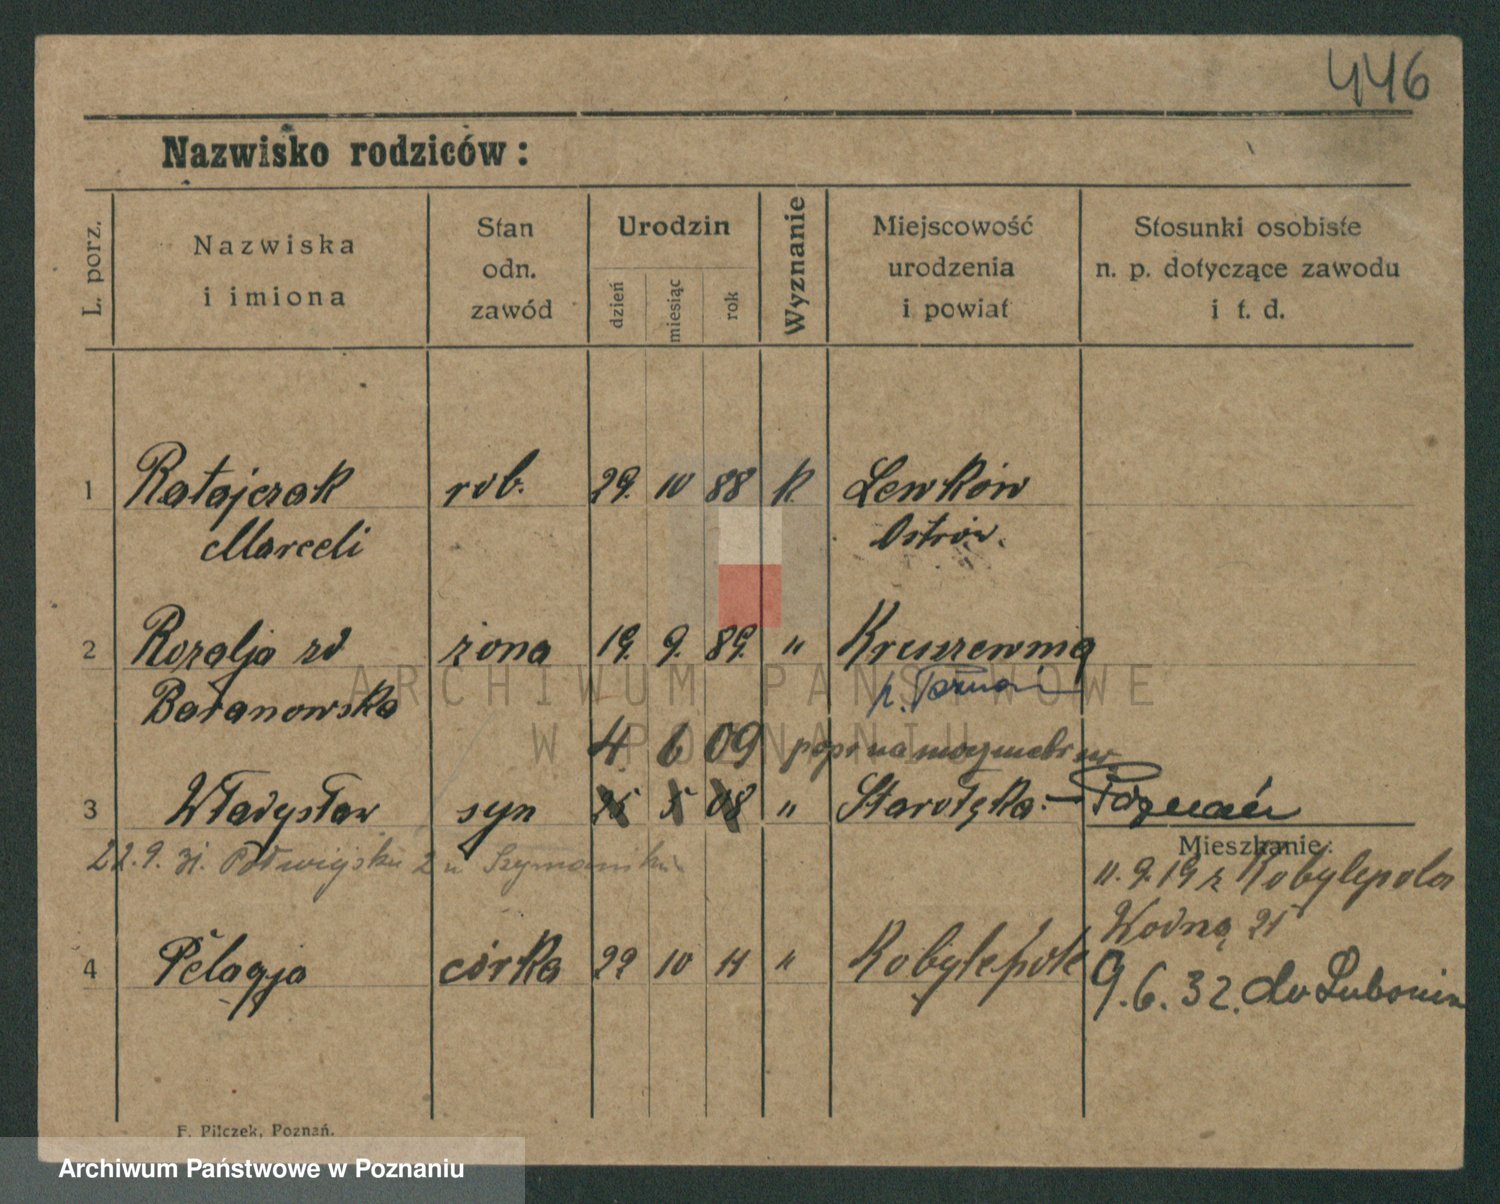 446
Nazwisko rodziców:
L. porz.
Nazwiska
i imiona
Stan
odn.
zawód
Urodzin
dzień
miesiąc
rok
Wyznanie
Miejscowość
urodzenia
i powiat
Stosunki osobiste
n. p. dotyczące zawodu
i t. d.
1 Ratajczak rob. 29. 10 88 k. Lewków
Marceli Ostrów.
2 Rozalja zd żona 19. 9. 89. " Kruszewnia
Baranowska p. Poznań
ARCHIWUM PAŃSTWOWE
W POZNANIU
4 6 09 popr na
3 Władysław syn 25 5 08 " Starołęka - Poznań
Mieszkanie:
22.9.31. 2 u Szymaniak
11.9.19 z Kobylepola
Wodną 25
4 Pelagja córka 22 10 11 " Kobylepole
9.6.32. do Lubonia
F. Pilczek, Poznań.
Archiwum Państwowe w Poznaniu